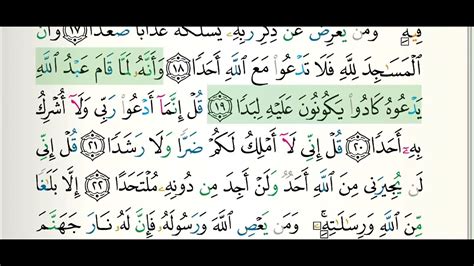 فِيهِ ۚ وَمَن يُعْرِضْ عَن ذِكْرِ رَبِّهِۦ يَسْلُكْهُ عَذَابًا صَعَدًا ١٧ وَأَنَّ
ٱلْمَسَٰجِدَ لِلَّهِ فَلَا تَدْعُوا۟ مَعَ ٱللَّهِ أَحَدًا ١٨ وَأَنَّهُۥ لَمَّا قَامَ عَبْدُ ٱللَّهِ
يَدْعُوهُ كَادُوا۟ يَكُونُونَ عَلَيْهِ لِبَدًا ١٩ قُلْ إِنَّمَآ أَدْعُوا۟ رَبِّى وَلَآ أُشْرِكُ
بِهِۦٓ أَحَدًا ٢٠ قُلْ إِنِّى لَآ أَمْلِكُ لَكُمْ ضَرًّا وَلَا رَشَدًا ٢١ قُلْ إِنِّى
لَن يُجِيرَنِى مِنَ ٱللَّهِ أَحَدٌ وَلَنْ أَجِدَ مِن دُونِهِۦ مُلْتَحَدًا ٢٢ إِلَّا بَلَٰغًا
مِّنَ ٱللَّهِ وَرِسَٰلَٰتِهِۦ ۚ وَمَن يَعْصِ ٱللَّهَ وَرَسُولَهُۥ فَإِنَّ لَهُۥ نَارَ جَهَنَّمَ